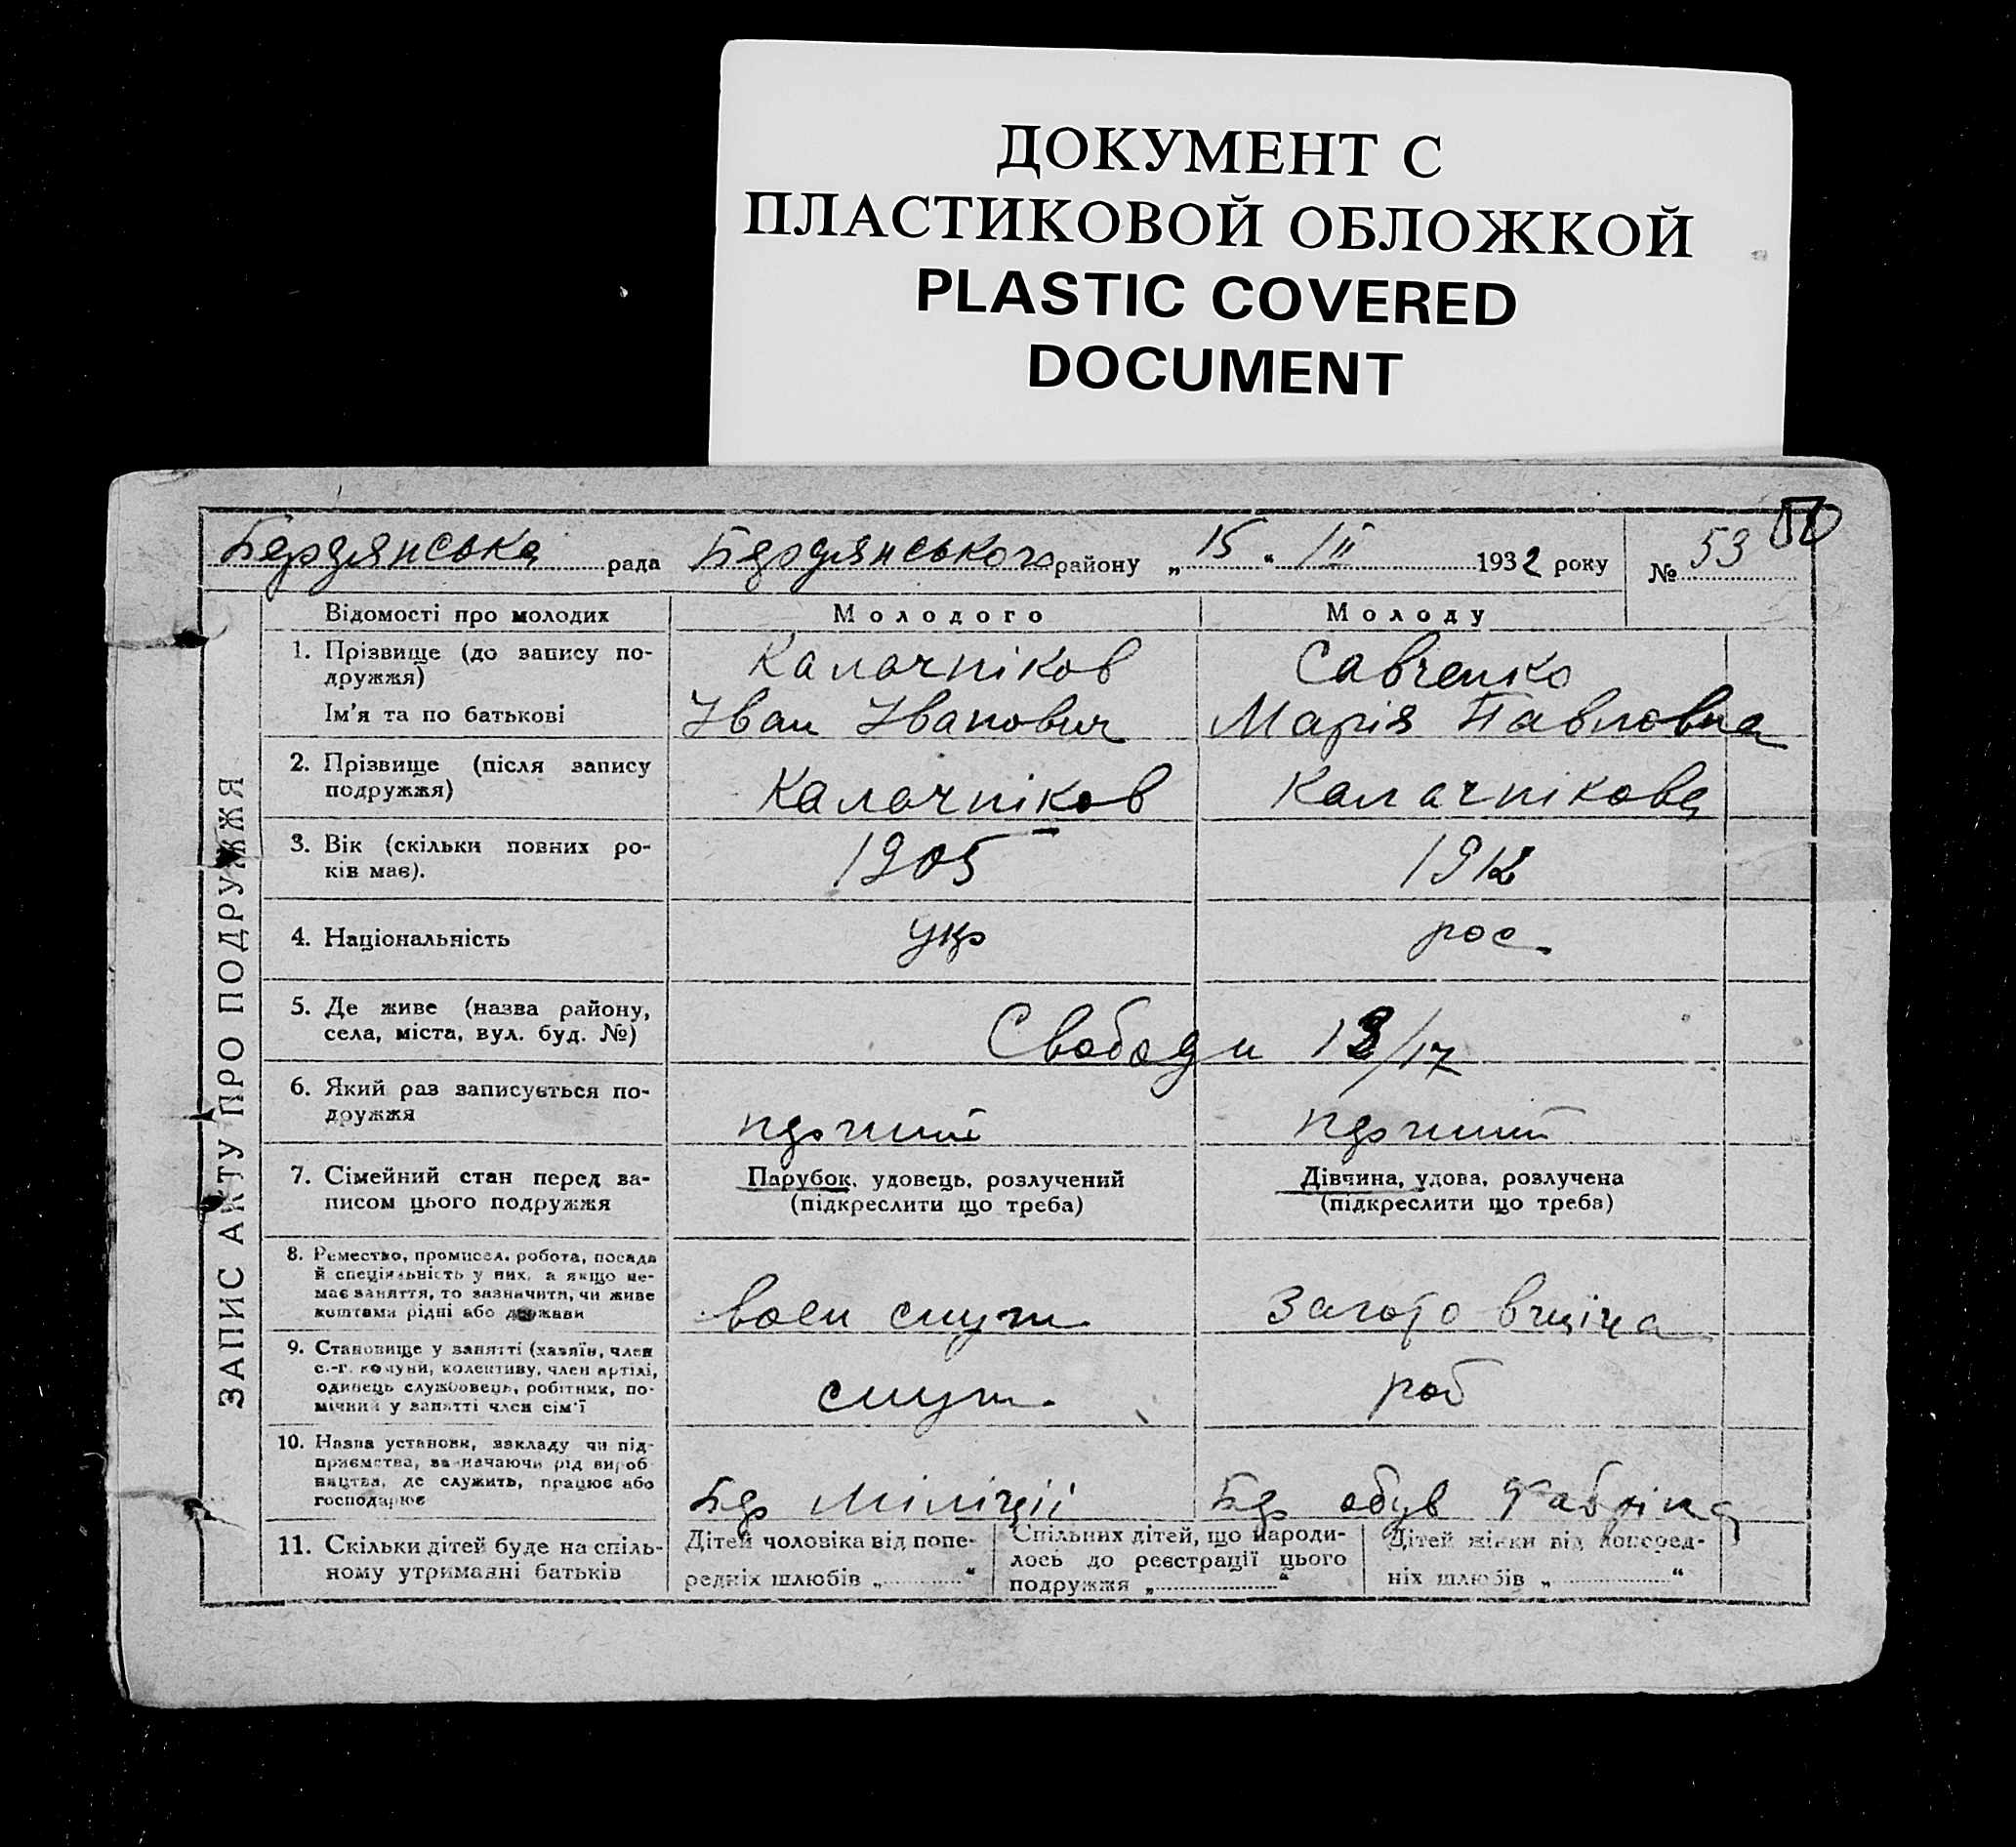 ДОКУМЕНТ С
ПЛАСТИКОВОЙ ОБЛОЖКОЙ
PLASTIC COVERED
DOCUMENT
Бердянська рада Бердянського району „15“ III 1932 року № 53
ЗАПИС АКТУ ПРО ПОДРУЖЖЯ
Відомості про молодих Молодого Молоду
1. Прізвище (до запису по-
дружжя) Калачніков Савченко
Ім'я та по батькові Іван Іванович Марія Павловна
2. Прізвище (після запису
подружжя) Калачніков Калачнікова
3. Вік (скільки повних ро-
ків має). 1905 1912
4. Національність укр рос.
5. Де живе (назва району,
села, міста, вул. буд. №) Свободи 13/17
6. Який раз записується по-
дружжя перший перший
7. Сімейний стан перед за-
писом цього подружжя
Парубок, удовець, розлучений
(підкреслити що треба)
Дівчина, удова, розлучена
(підкреслити що треба)
8. Ремество, промисел, робота, посада
й спеціяльність у них, а якщо не-
має заняття, то зазначити, чи живе
коштами рідні або держави
воен служ
9. Становище у занятті (хазяїн, член
с.-г. комуни, колективу, член артілі,
одинець службовець, робітник, по-
мічний у занятті член сім'ї
служ. роб
10. Назва установи, закладу чи під-
приємства, зазначаючи рід вироб
ництва, де служить, працює або
господарює
Бер Міліції Бер обув Фабріка
11. Скільки дітей буде на спіль-
ному утриманні батьків
Дітей чоловіка від попе-
редніх шлюбів „ “
Спільних дітей, що народи-
лось до реєстрації цього
подружжя „ “
Дітей жінки від поперед-
ніх шлюбів „ “